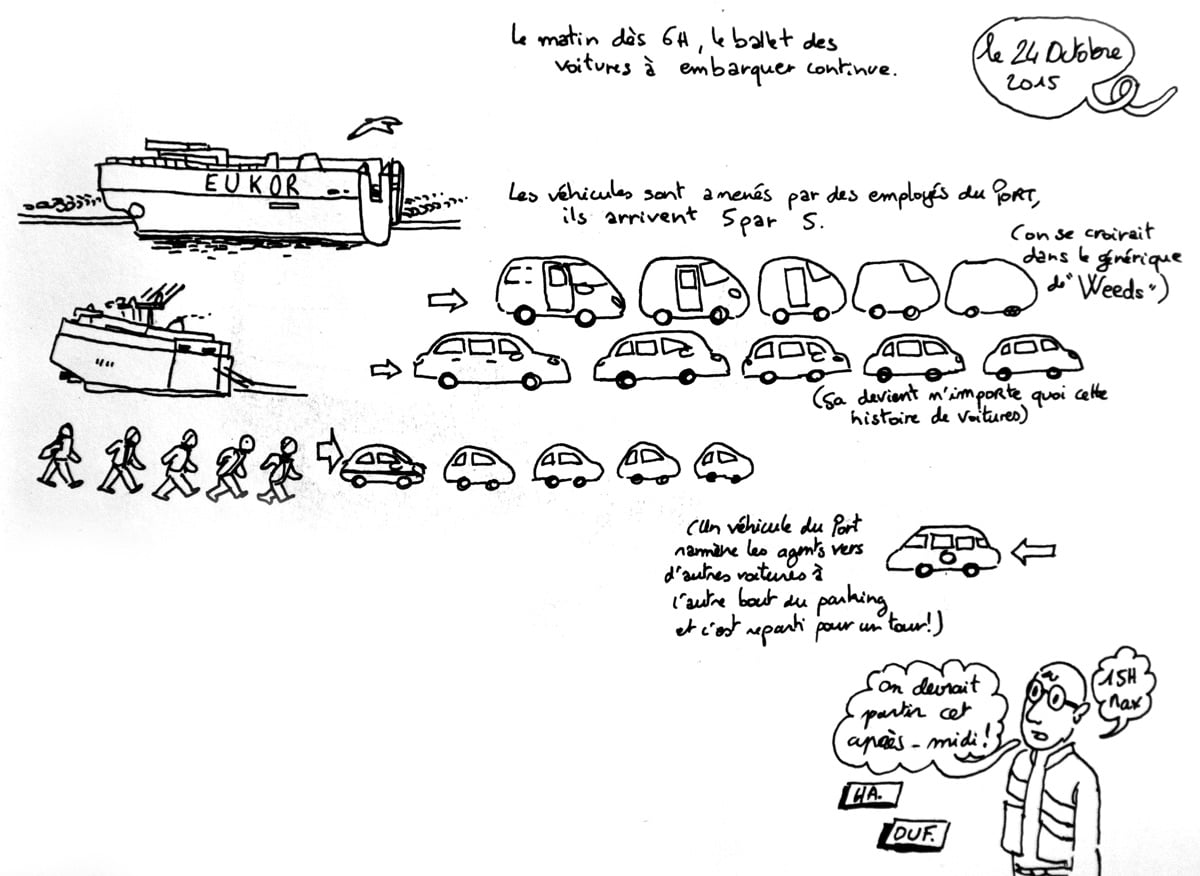 Le matin dès 6H, le ballet des
voitures à embarquer continue.
le 24 Octobre
2015
EUKOR
Les véhicules sont amenés par des employés du PORT,
ils arrivent 5 par 5.
(on se croirait
dans le générique
de "Weeds")
(ça devient n'importe quoi cette
histoire de voitures)
(Un véhicule du Port
ramène les agents vers
d'autres voitures à
l'autre bout du parking
et c'est reparti pour un tour!)
On devrait
partir cet
après-midi!
15H
max
HA.
DUF.